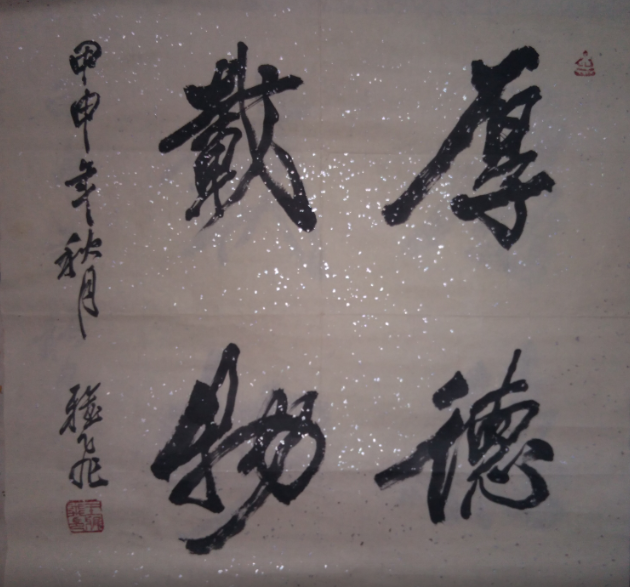 厚德
載物
甲申年秋月